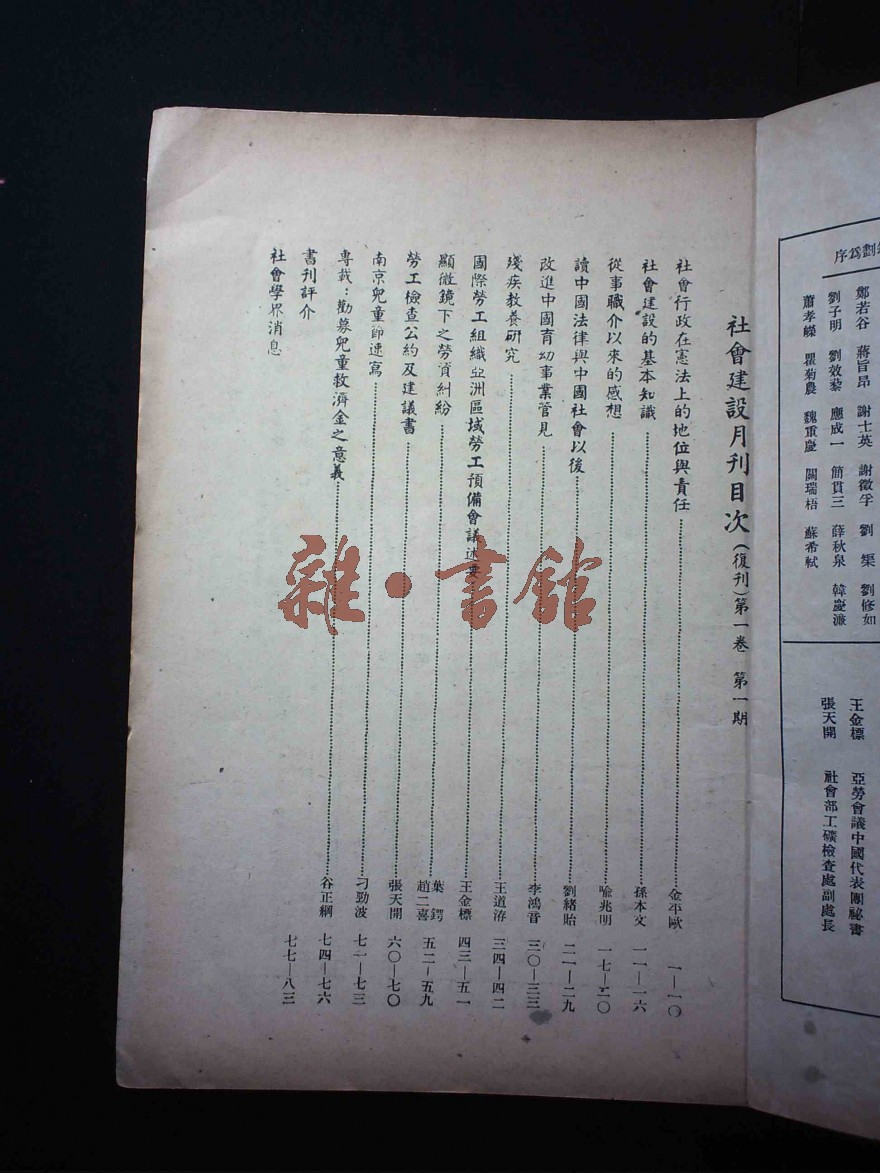 序為劃
鄭若谷 蔣旨昂 謝士英 謝徵孚 劉 榘 劉修如
劉子明 劉效藜 應成一 簡貫三 薛秋泉 韓慶濂
蕭孝嶸 瞿菊農 魏重慶 關瑞梧 蘇希軾
王金標 亞勞會議中國代表團祕書
張天開 社會部工礦檢查處副處長
社會建設月刊目次(復刊)第一卷 第一期
社會行政在憲法上的地位與責任……金平歐 一—一〇
社會建設的基本知識……孫本文 一一—一六
從事職介以來的感想……喻兆明 一七—二〇
讀中國法律與中國社會以後……劉緒貽 二一—二九
改進中國育幼事業管見……李鴻音 三〇—三三
殘疾教養研究……王道洊 三四—四二
國際勞工組織亞洲區域勞工預備會議述要……王金標 四三—五一
顯微鏡下之勞資糾紛……葉鍔 趙二喜 五二—五九
勞工檢查公約及建議書……張天開 六〇—七〇
南京兒童節速寫……刁勁波 七一—七三
專載：勸募兒童救濟金之意義……谷正綱 七四—七六
書刊評介
社會學界消息
七七—八三
雜·書館